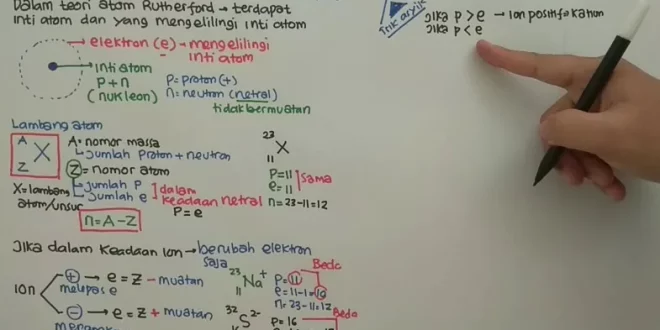 Dalam teori atom Rutherford → terdapat
inti atom dan yang mengelilingi inti atom
elektron (e) → mengelilingi
inti atom
inti atom
P + n
(nukleon)
P = proton (+)
n = neutron (netral)
tidak bermuatan
Lambang atom
A
X
Z
A = nomor massa
↳ Jumlah proton + neutron
Z = nomor atom
↳ jumlah P
↳ jumlah e
dalam
keadaan netral
P = e
X = lambang
atom/unsur
n = A - Z
23
X
11
P = 11
e = 11
Sama
n = 23 - 11 = 12
Jika dalam keadaan ion → berubah elektron
saja
ion
+ → e = Z - muatan
melepas e
- → e = Z + muatan
23
Na+
11
P = 11
e = 11 - 1 = 10
Beda
n = 23 - 11 = 12
32
S2-
P = 16
Beda
Trik asyik
Jika P > e → ion positif = kation
Jika P < e